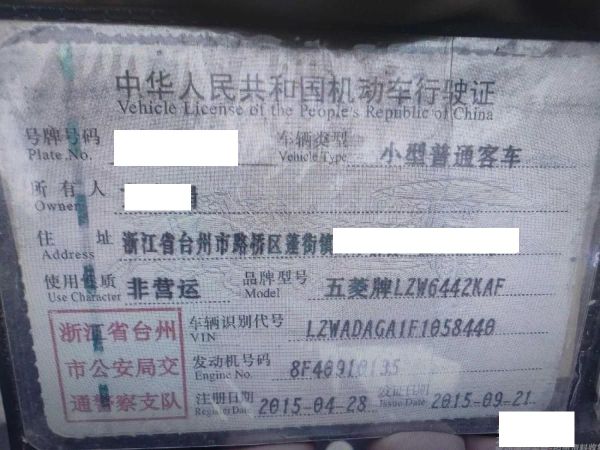 中华人民共和国机动车行驶证
Vehicle License of the People's Republic of China
号牌号码 车辆类型 小型普通客车
Plate No. Vehicle Type
所有人
Owner
住址 浙江省台州市路桥区蓬街镇
Address
使用性质 非营运 品牌型号 五菱牌LZW6442KAF
Use Character Model
浙江省台州 车辆识别代号 LZWADAGA1F1058440
VIN
市公安局交 发动机号码 8F40910135
Engine No.
通警察支队 注册日期 2015-04-28 发证日期 2015-09-21
Register Date Issue Date